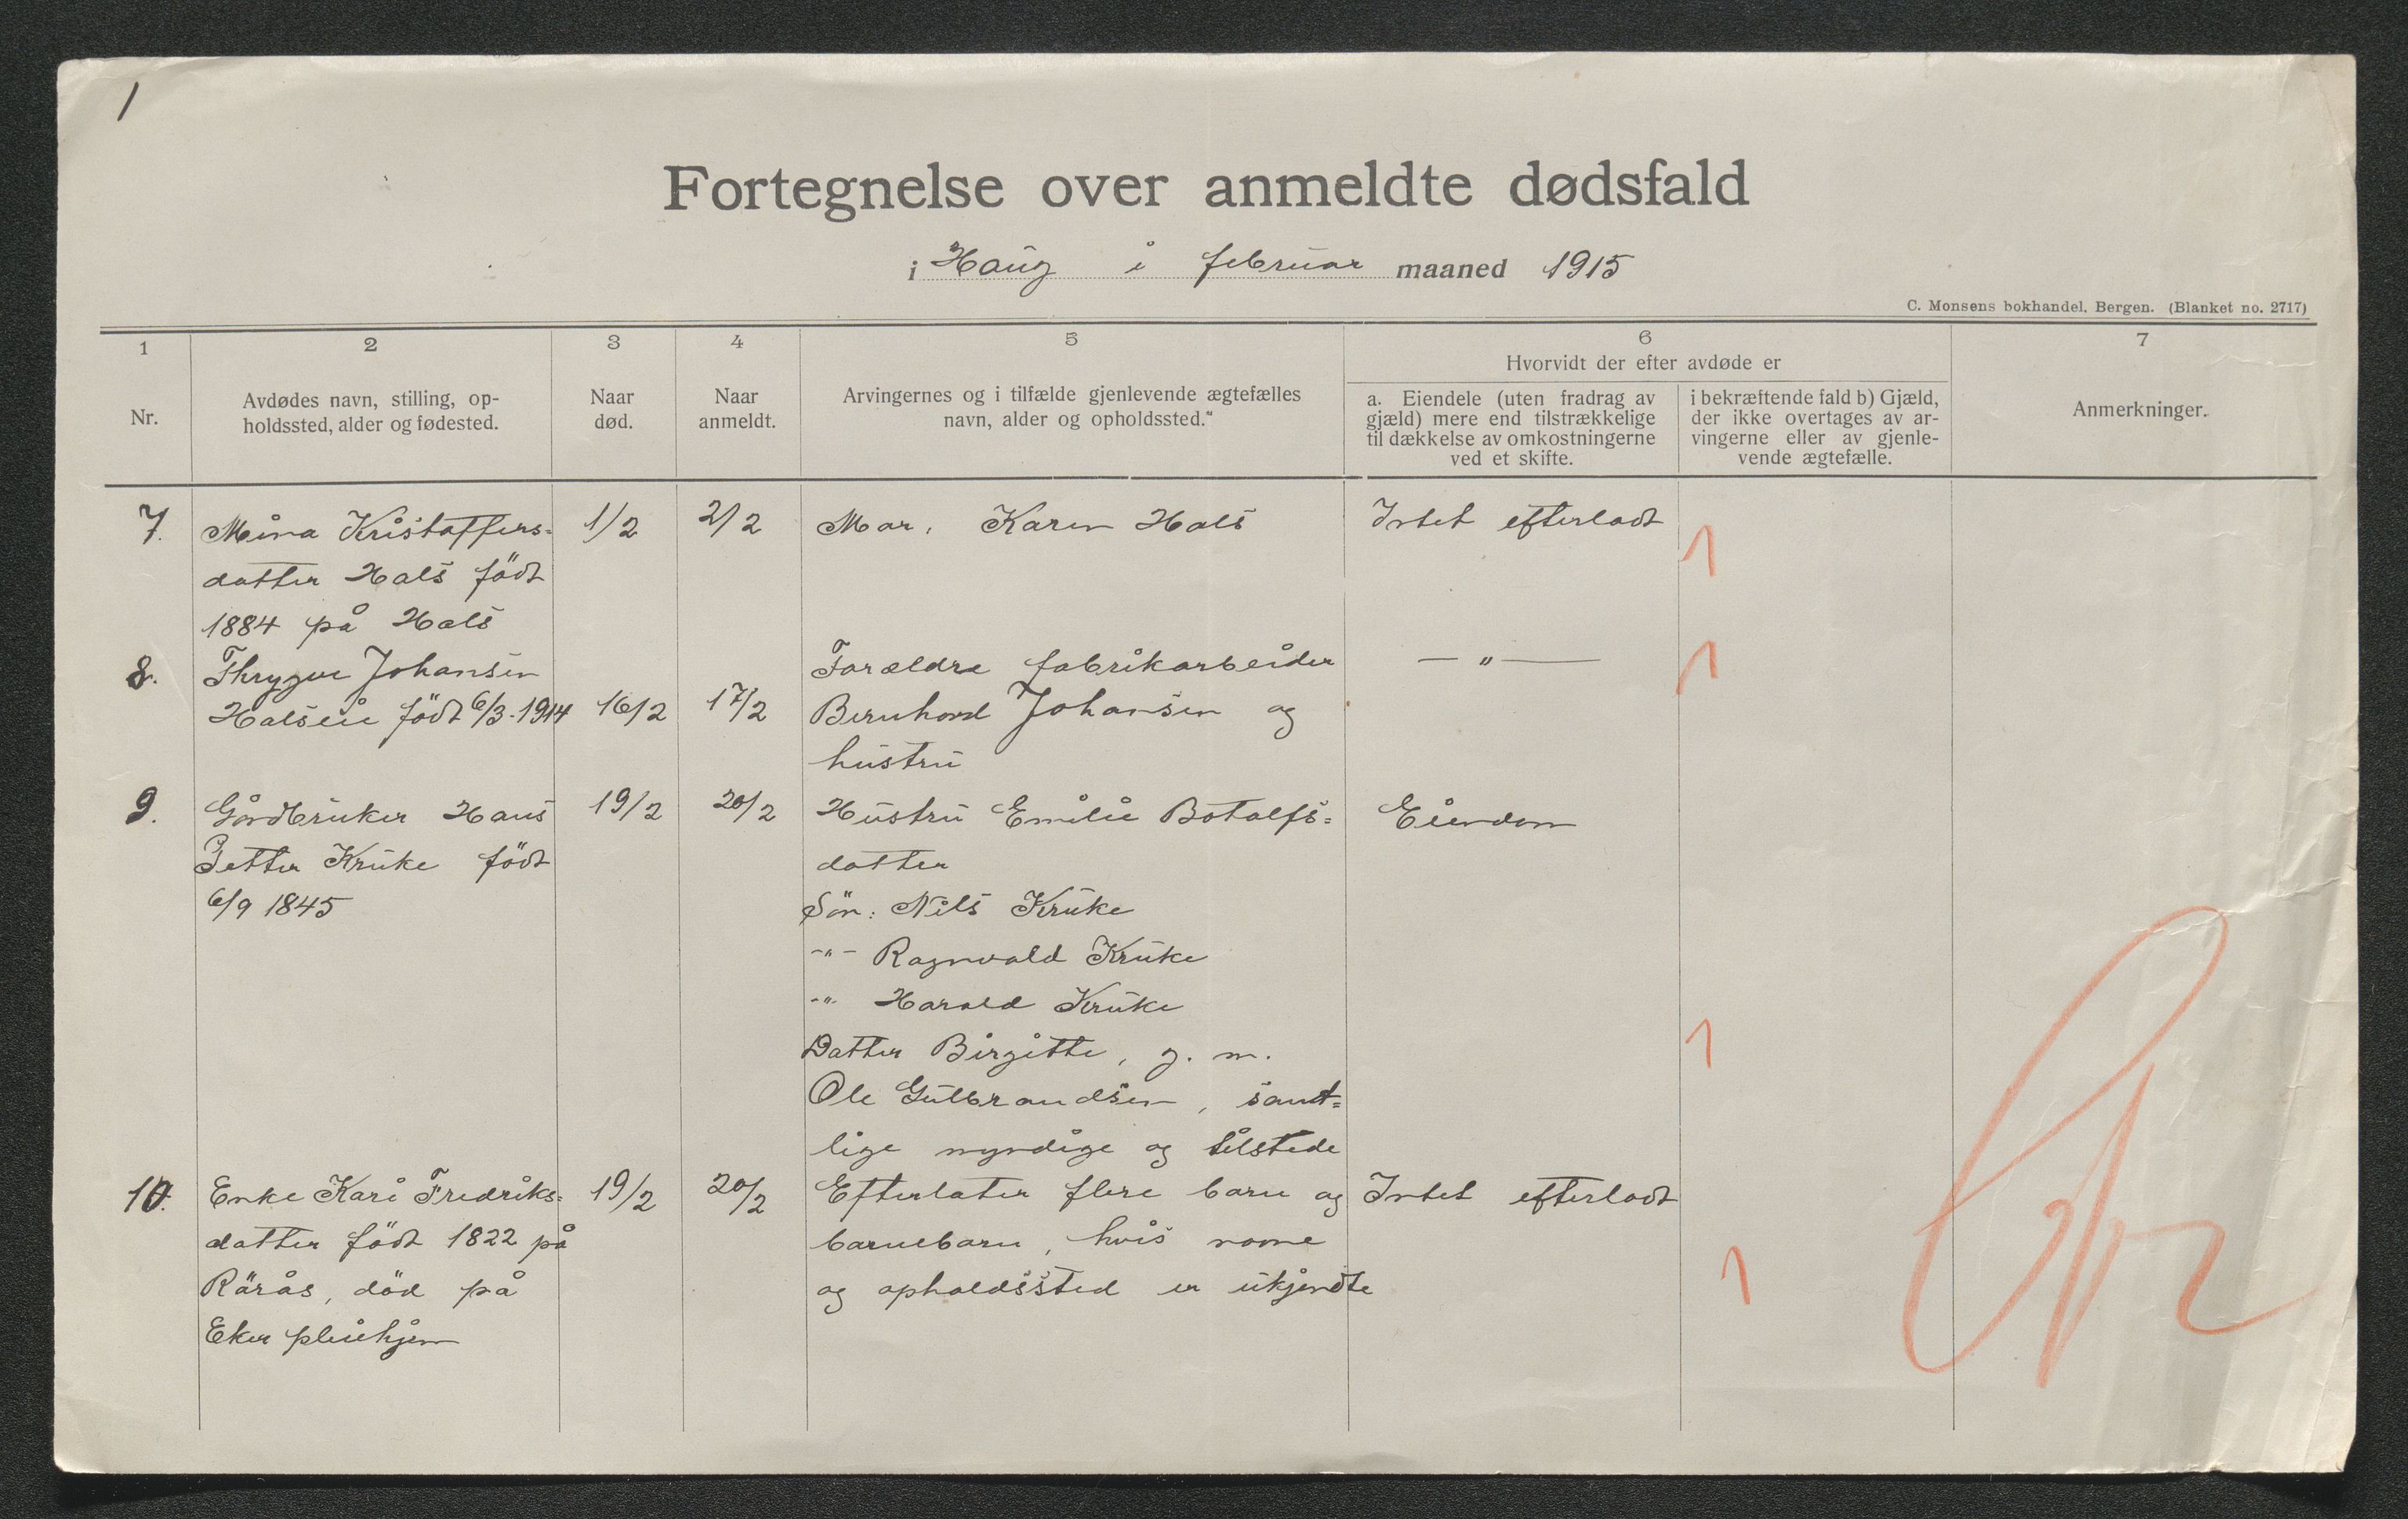 1
Fortegnelse over anmeldte dødsfald
i Haug i februar maaned 1915
C. Monsens bokhandel, Bergen. (Blanket no. 2717)
1
Nr.
2
Avdødes navn, stilling, op-
holdssted, alder og fødested.
3
Naar
død.
4
Naar
anmeldt.
5
Arvingernes og i tilfælde gjenlevende ægtefælles
navn, alder og opholdssted.
6
Hvorvidt der efter avdøde er
a. Eiendele (uten fradrag av
gjæld) mere end tilstrækkelige
til dækkelse av omkostningerne
ved et skifte.
i bekræftende fald b) Gjæld,
der ikke overtages av ar-
vingerne eller av gjenle-
vende ægtefælle.
7
Anmerkninger.
7. Mina Kristoffers= 1/2 2/2 Mor. Karen Hals Intet efterladt
datter Hals född
1884 på Hals
8. Thrygve Johansen Forældre fabrikarbeider — " —
Halseie född 6/3-1914 16/2 17/2 Bernhard Johansen og
hustru
9. Gårdbruker Hans 19/2 20/2 Hustru Emilie Botolfs= Eiendom
Petter Kruke född datter
6/9 1845 Sön: Nils Kruke
-"- Ragnvald Kruke
-"- Harald Kruke
Datter Birgitte, g. m.
Ole Gulbrandsen, samt=
lige myndige og tilstede
10. Enke Kari Fredriks= 19/2 20/2 Efterlater flere barn og Intet efterladt
datter född 1822 på barnebarn, hvis navne
Rärås, död på og opholdssted er ukjendte
Eker pleiehjem